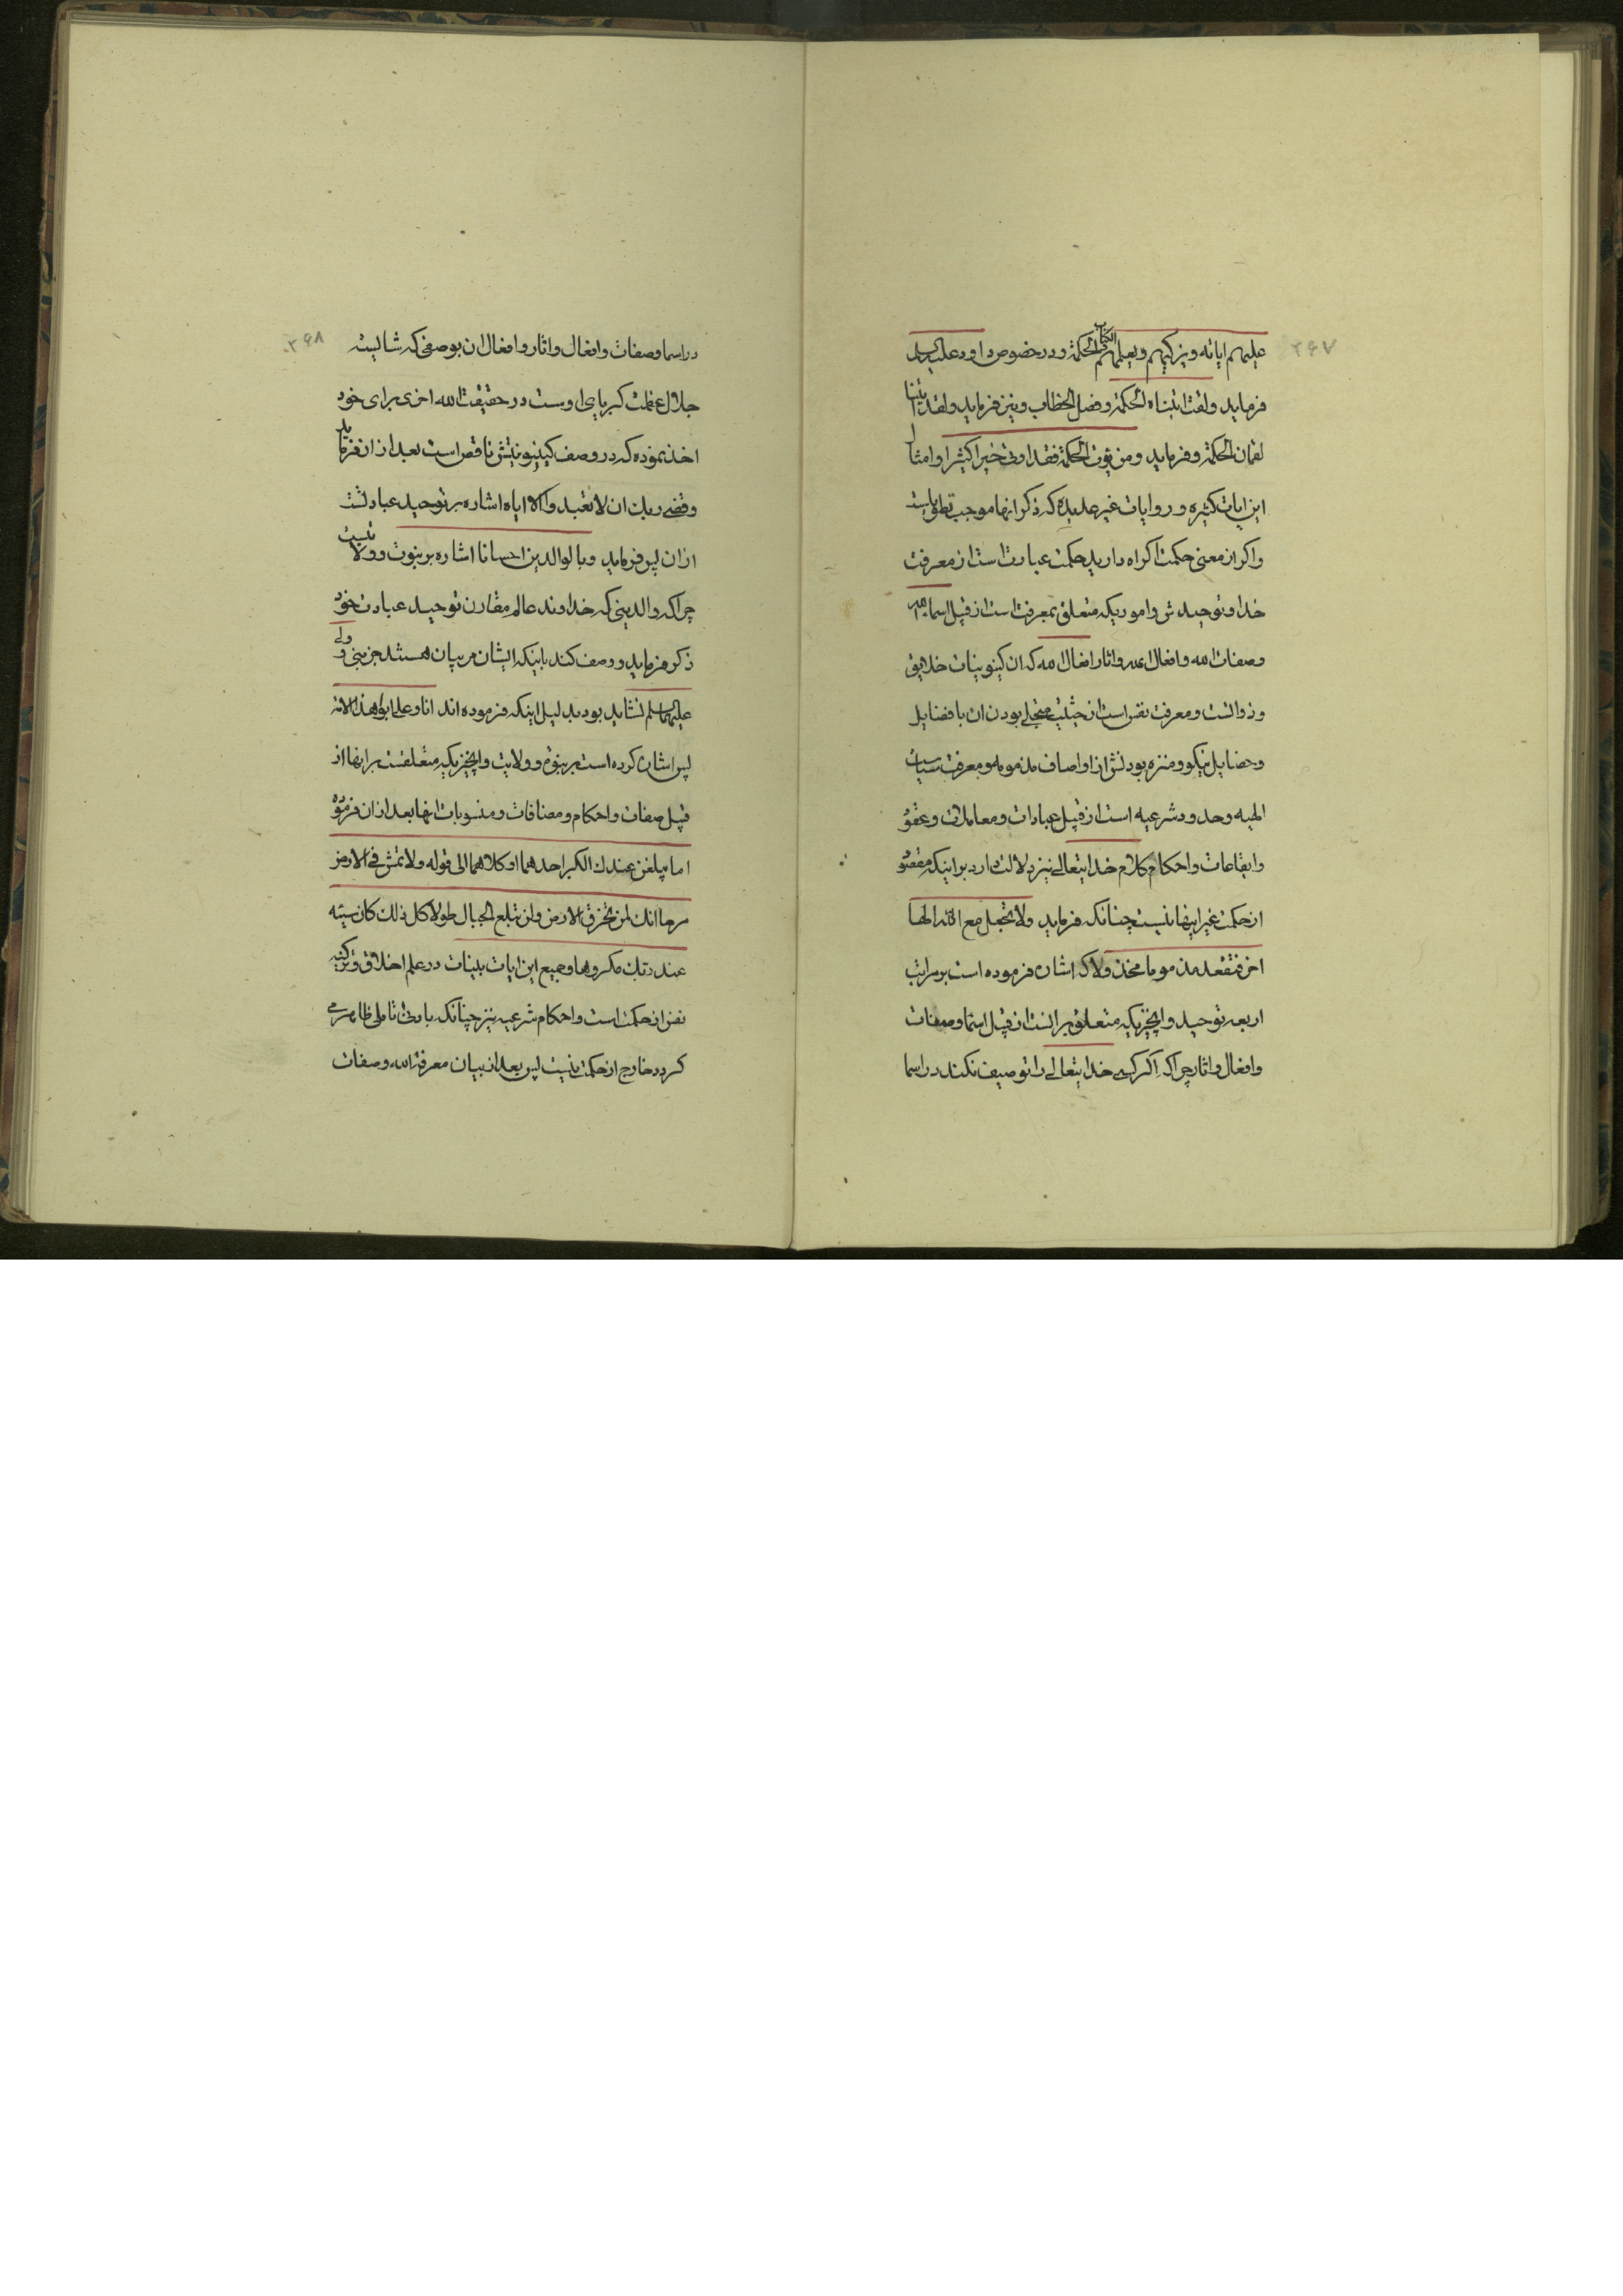 ۲۶۷
علیهم ایاته و یزکیهم و یعلمهم الکتاب و الحکمة و در خصوص داود علیه السلام
فرماید و لقد اتیناه الحکمة و فصل الخطاب و نیز فرماید و لقد اتینا
لقمان الحکمة و فرماید و من یؤت الحکمة فقد اوتی خیرا کثیرا و امثال
این ایات کثیره و روایات غیر عدیده که ذکر انها موجب تطویل است
و اکر از معنی حکمت اکراه دارید حکمت عبارت است از معرفت
خدا و توحیدش و اموریکه متعلق بمعرفت است از قبیل اسماء الله
و صفات الله و افعال الله و اثار افعال الله که ان کینونینات خلایق
و ذواتست و معرفت نفس است از حیثیت متحلی بودن ان بافضایل
و خصایل نیکو و منزه بودنش از اوصاف مذمومه و معرفت سیاسات
الهیه و حدود شرعیه است از قبیل عبادات و معاملات و عقود
و ایقاعات و احکام کلام خدایتعالی نیز دلالت دارد بر اینکه مقصود
از حکمت غیر اینها نیست چنانکه فرماید ولا تجعل مع الله الها
اخر فتقعد مذموما مخذولا که اشاره فرموده است بر مراتب
اربعه توحید و انچیزیکه متعلق برانست از قبیل اسما و صفات
و افعال و اثار چراکه اکر کسی خدایتعالی را توصیف نکند در اسما
۲۶۸
در اسما و صفات و افعال و اثار و افعال ان بوصفی که شایسته
جلال عظمت کبریایی اوست در حقیقت الله اخری برای خود
اخذ نموده که در وصف کینونیتش ناقص است بعد از ان فرماید
و قضی ربک ان لا تعبدوا الا ایاه اشاره بر توحید عبادتست
از ان پس فرماید و بالوالدین احسانا اشاره بر نبوت و ولایتست
چراکه والدینی که خداوند عالم مقارن توحید عبادت خود
ذکر فرماید و وصف کند باینکه ایشان مربیان هستند جز نبی و ولی
علیهما السلم نشاید بود بدلیل اینکه فرموده اند انا و علی ابوا هذه الامة
پس اشاره کرده است بر نبوة و ولایت و انچیزیکه متعلقست بر انها از
قبیل صفات و احکام و مضافات و منسوبات انها بعد از ان فرموده
اما یبلغن عندک الکبر احدهما او کلاهما الی قوله ولا تمش فی الارض
مرحا انک لن تخرق الارض ولن تبلغ الجبال طولا کل ذلک کان سیئه
عند ربک مکروها و جمیع این ایات بینات در علم اخلاق و تزکیه
نفس از حکمت است و احکام شرعیه نیز چنانکه بادنی تاملی ظاهر می
کردد خارج از حکمت نیست پس بعد از بیان معرفة الله و صفات